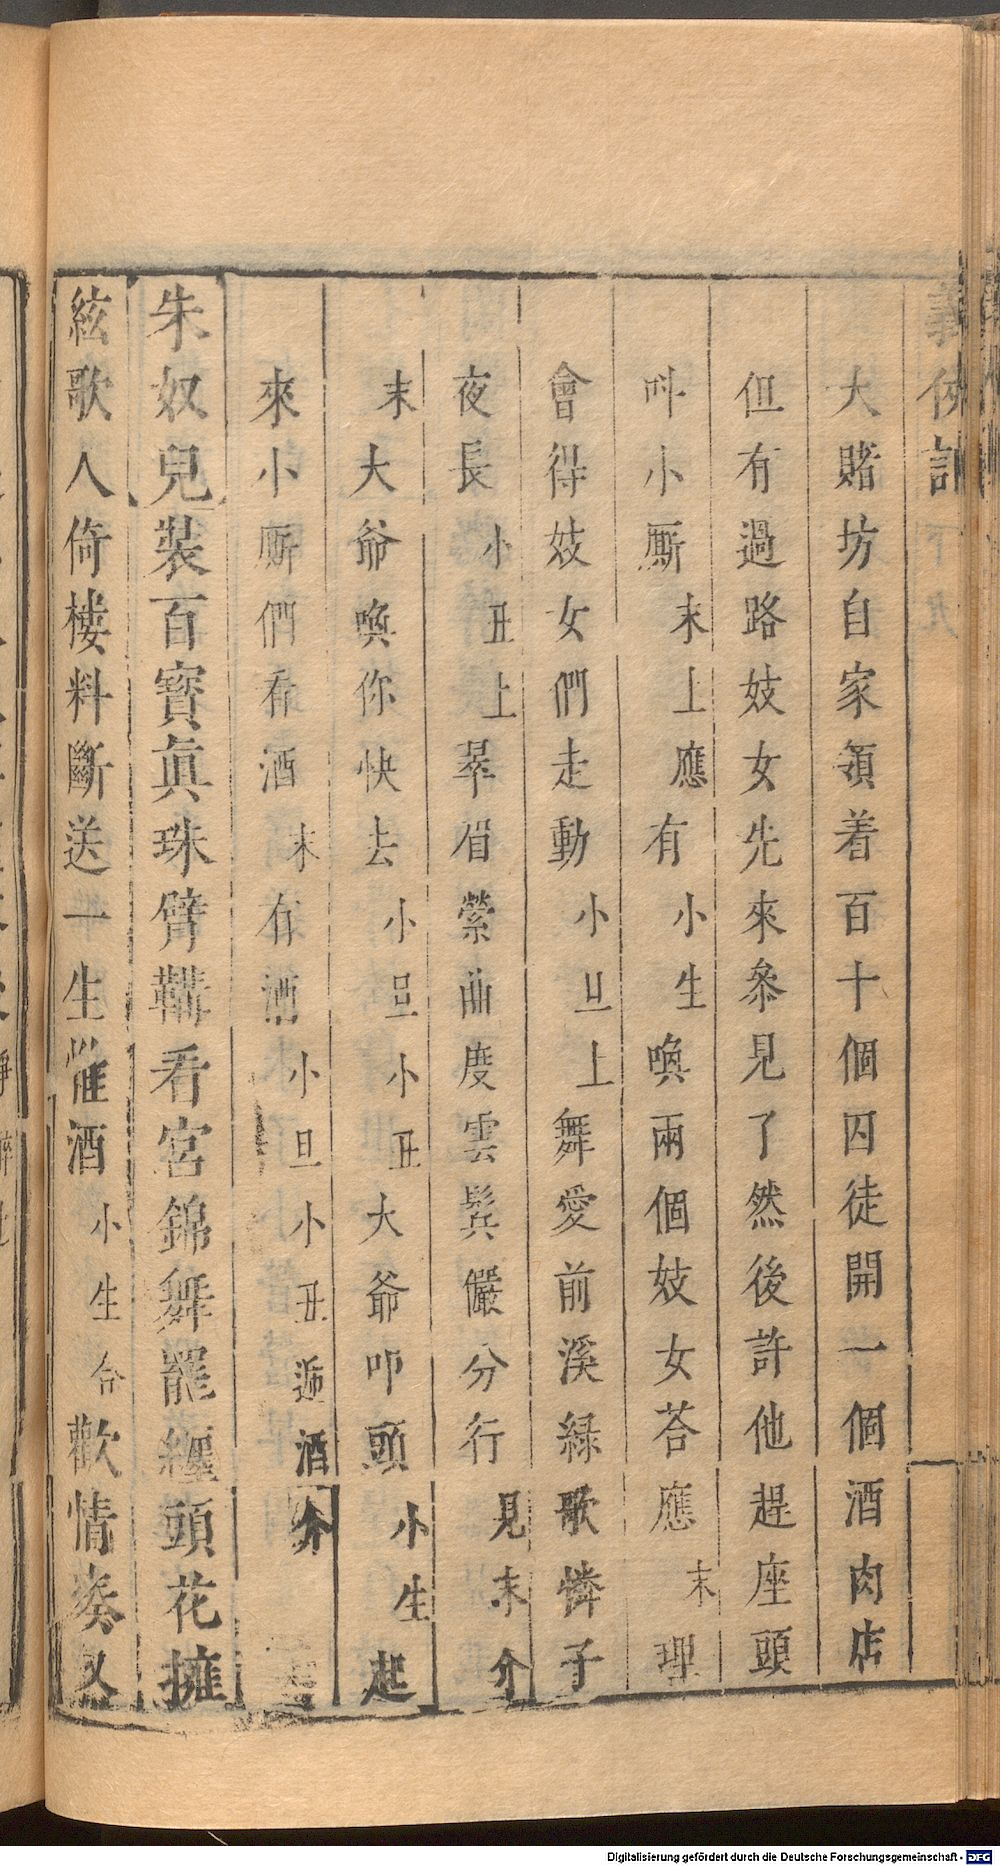 義俠記 下 九
大賭坊自家領着百十個囚徒開一個酒肉店
但有過路妓女先來叅見了然後許他趕座頭
呌小厮末上應有小生喚兩個妓女荅應末理
會得妓女們走動小旦上舞愛前溪緑歌憐子
夜長小丑上翠眉縈曲度雲鬂儼分行見末介
末大爺喚你快去小旦小丑大爺叩頭小生起
來小厮們看酒末有酒小旦小丑遞酒介
朱奴兒裝百寳真珠臂鞲看宮錦舞罷纏頭花擁
絃歌人倚樓料斷送一生惟酒小生合歡情奏又
Digitalisierung gefördert durch die Deutsche Forschungsgemeinschaft - DFG